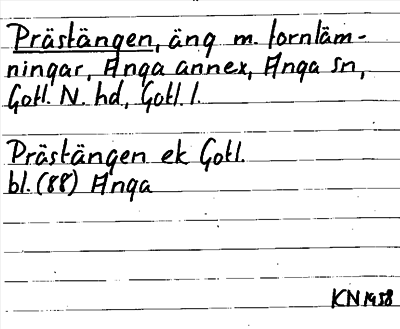 Prästängen, äng m. fornläm-
ningar, Anga annex, Anga sn,
Gotl. N. hd, Gotl. l.
Prästängen ek Gotl.
bl. (88) Anga
KN 1958